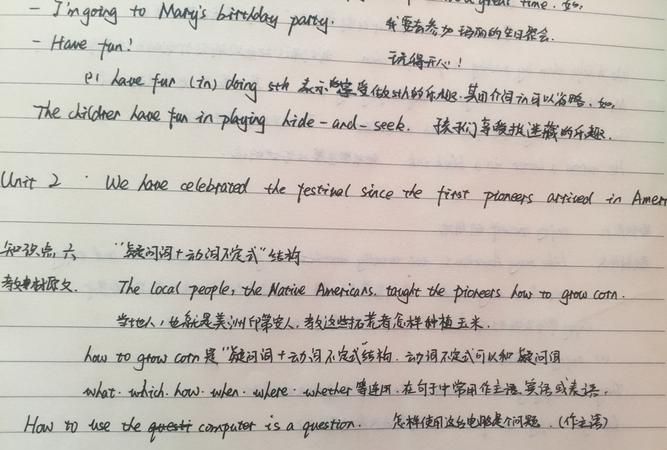 great time. 如,
- I'm going to Mary's birthday party. 我要去参加玛丽的生日聚会.
- Have fun! 玩得开心!
have fun (in) doing sth 表示享受做sth的乐趣. 其中介词in可以省略, 如,
The children have fun in playing hide-and-seek. 孩子们享受捉迷藏的乐趣.
Unit 2 · We have celebrated the festival since the first pioneers arrived in Amer
知识点六 "疑问词+动词不定式"结构
教材原文. The local people, the Native Americans, taught the pioneers how to grow corn.
当地人, 也就是美洲印第安人, 教这些拓荒者怎样种植玉米.
how to grow corn 是"疑问词+动词不定式"结构. 动词不定式可以和疑问词
what. which. how. when. where. whether 等连用, 在句子中常用作主语, 宾语或表语.
How to use the computer is a question. 怎样使用这台电脑是个问题. (作主语)